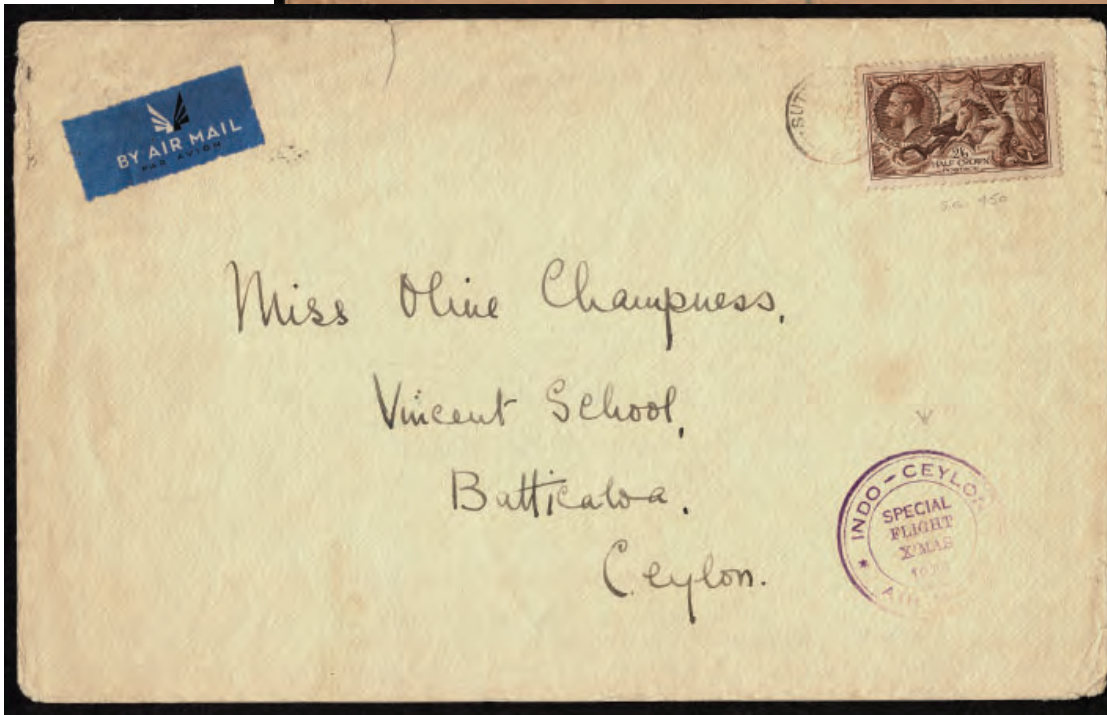 BY AIR MAIL
PAR AVION
SUT
2/6
HALF CROWN
POSTAGE
S.G. 450
Miss Olive Champness,
Vincent School,
Batticaloa.
Ceylon.
INDO-CEYLON
SPECIAL
FLIGHT
X'MAS
AIR